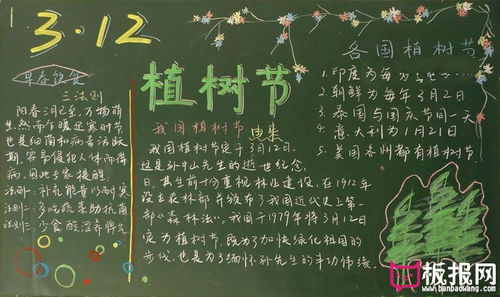 3·12
早春饮食
三法则
阳春三月已至,万物萌
生,然而乍暖还寒时节
也是细菌和病毒活跃
期,容易侵犯人体而得
病,因此专家提醒,
法则一:补充能量以耐寒
法则二:多吃蔬菜助抗菌
法则三:少食酸滋养脾气
植树节
我国植树节 由来
我国植树节定于3月12日.
这是孙中山先生的逝世纪念
日,其生前十分重视林业建设,在1912年
设立农林部并颁布了我国近代史上第一
部“森林法”,我国于1979年将3月12日
定为植树节,既为了加快绿化祖国的
步伐,也是为了缅怀孙先生的丰功伟绩.
各国植树节
1.印度为每年
2.朝鲜为每年3月2日
3.泰国与国庆节同一天
4.意大利为1月21日
5.美国各州都有植树节
板报网
www.banbaowang.com